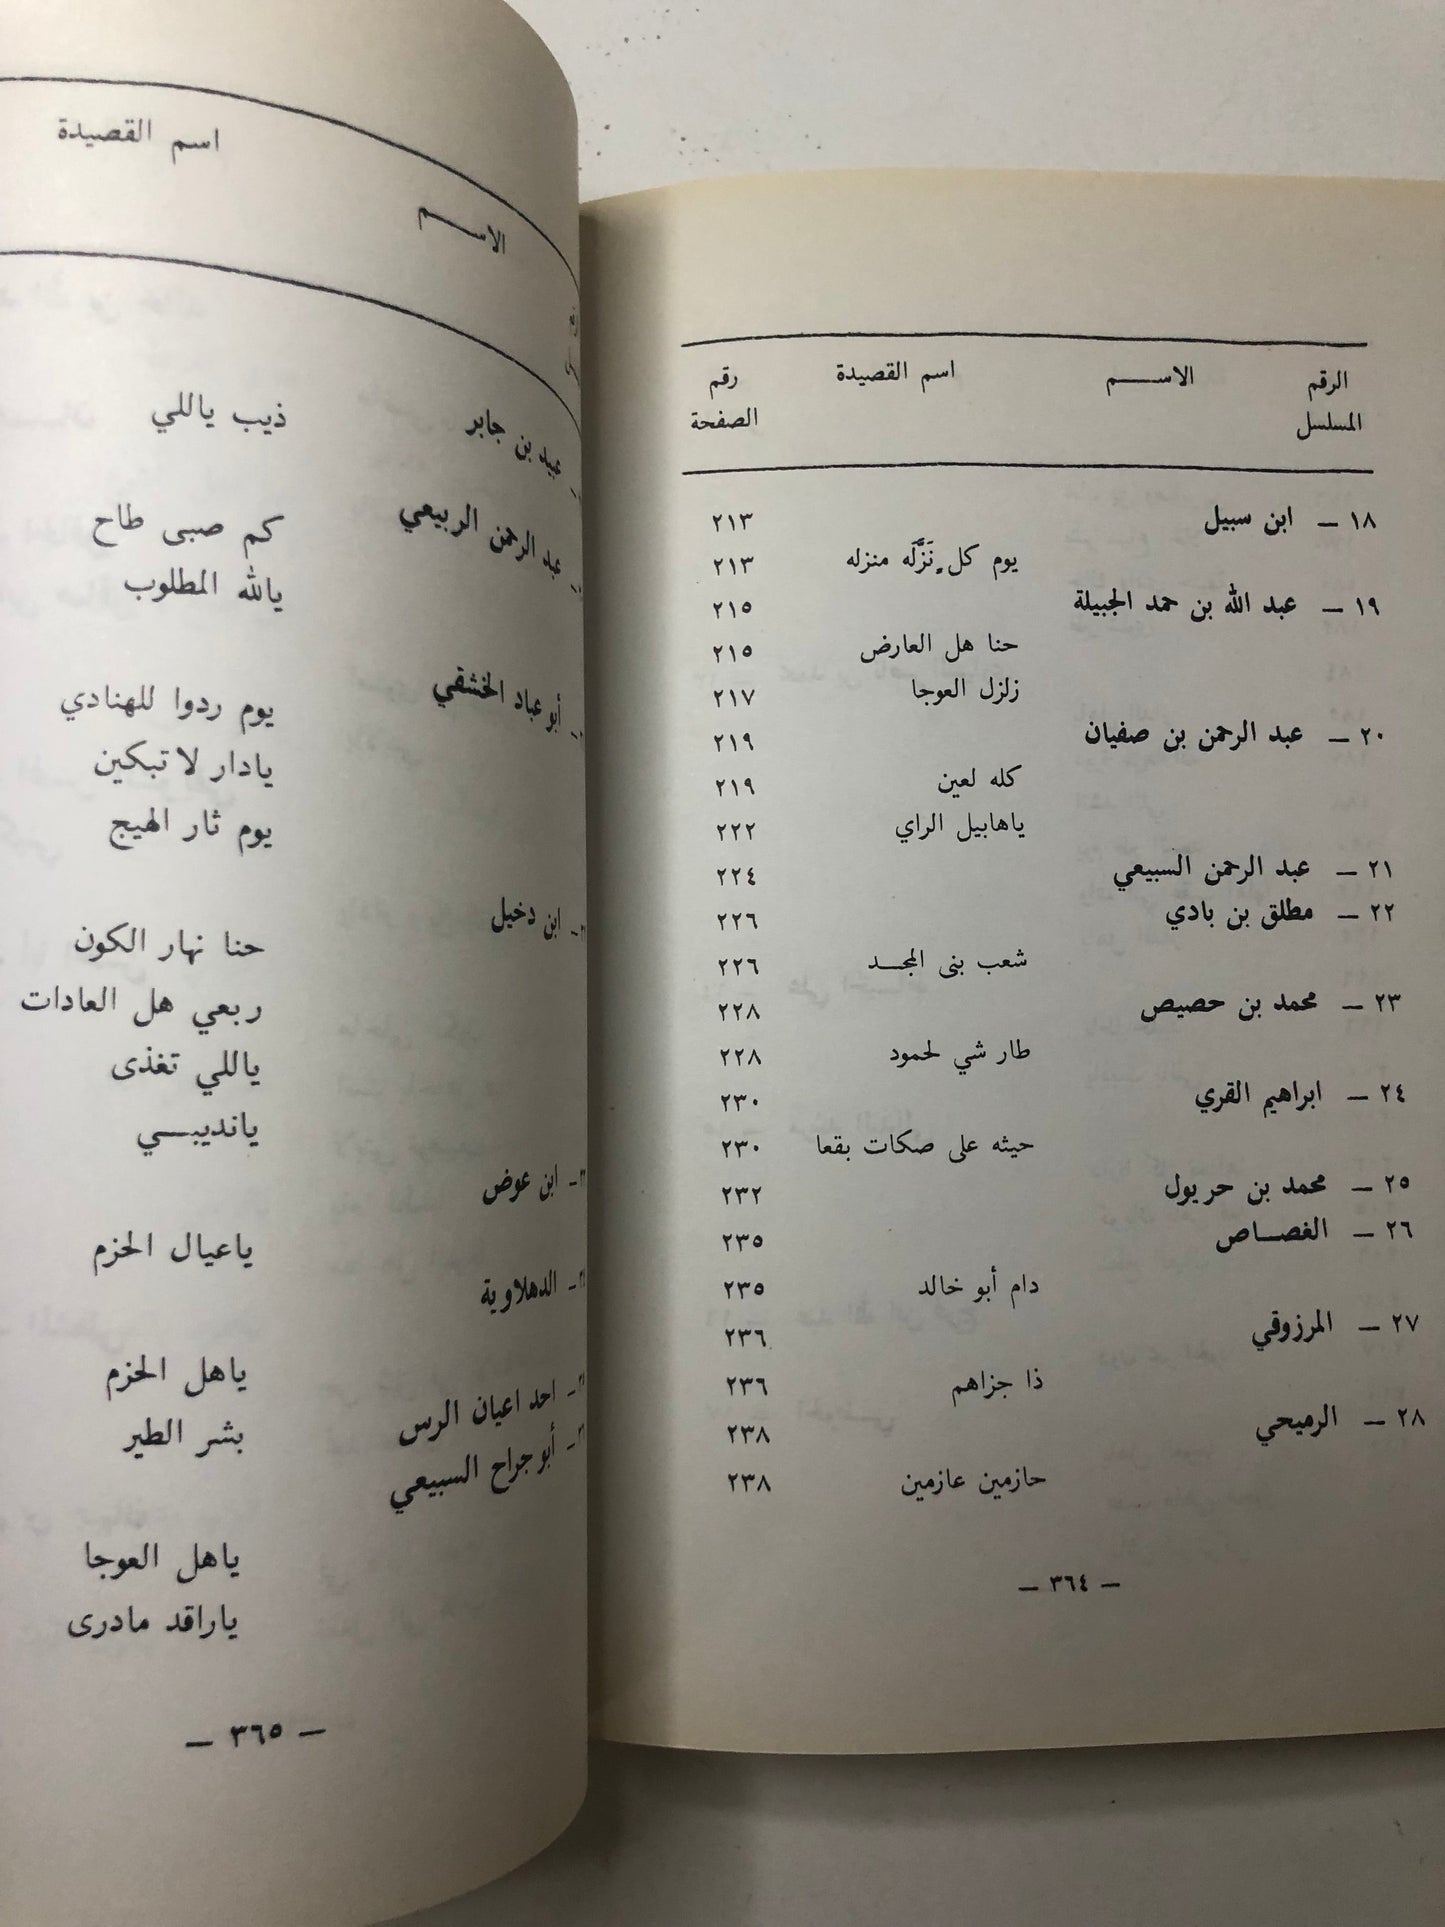 الرقم المسلسل الاســـم اسم القصيدة رقم الصفحة
١٨ – ابن سبيل ٢١٣
يوم كل نَزَّلَه منزله ٢١٣
١٩ – عبد الله بن حمد الجبيلة ٢١٥
حنا هل العارض ٢١٥
زلزل العوجا ٢١٧
٢٠ – عبد الرحمن بن صفيان ٢١٩
كله لعين ٢١٩
ياهابيل الراي ٢٢٢
٢١ – عبد الرحمن السبيعي ٢٢٤
٢٢ – مطلق بن بادي ٢٢٦
شعب بنى المجــد ٢٢٦
٢٣ – محمد بن حصيص ٢٢٨
طار شي لحمود ٢٢٨
٢٤ – ابراهيم القري ٢٣٠
حيثه على صكات بقعا ٢٣٠
٢٥ – محمد بن حريول ٢٣٢
٢٦ – الغصــاص ٢٣٥
دام أبو خالد ٢٣٥
٢٧ – المرزوقي ٢٣٦
ذا جزاهم ٢٣٦
٢٨ – الرميحي ٢٣٨
حازمين عازمين ٢٣٨
– ٣٦٤ –
الاســـم اسم القصيدة
– عبيد بن جابر
ذيب ياللي
– عبد الرحمن الربيعي
كم صبى طاح
يالله المطلوب
– أبو عباد الخشقي
يوم ردوا للهنادي
يادار لا تبكين
يوم ثار الهيج
– ابن دخيل
حنا نهار الكون
ربعي هل العادات
ياللي تغذى
يانديبــي
– ابن عوض
ياعيال الحزم
– الدهلاوية
ياهل الحزم
– احد اعيان الرس
بشر الطير
– أبو جراح السبيعي
ياهل العوجا
ياراقد مادرى
– ٣٦٥ –